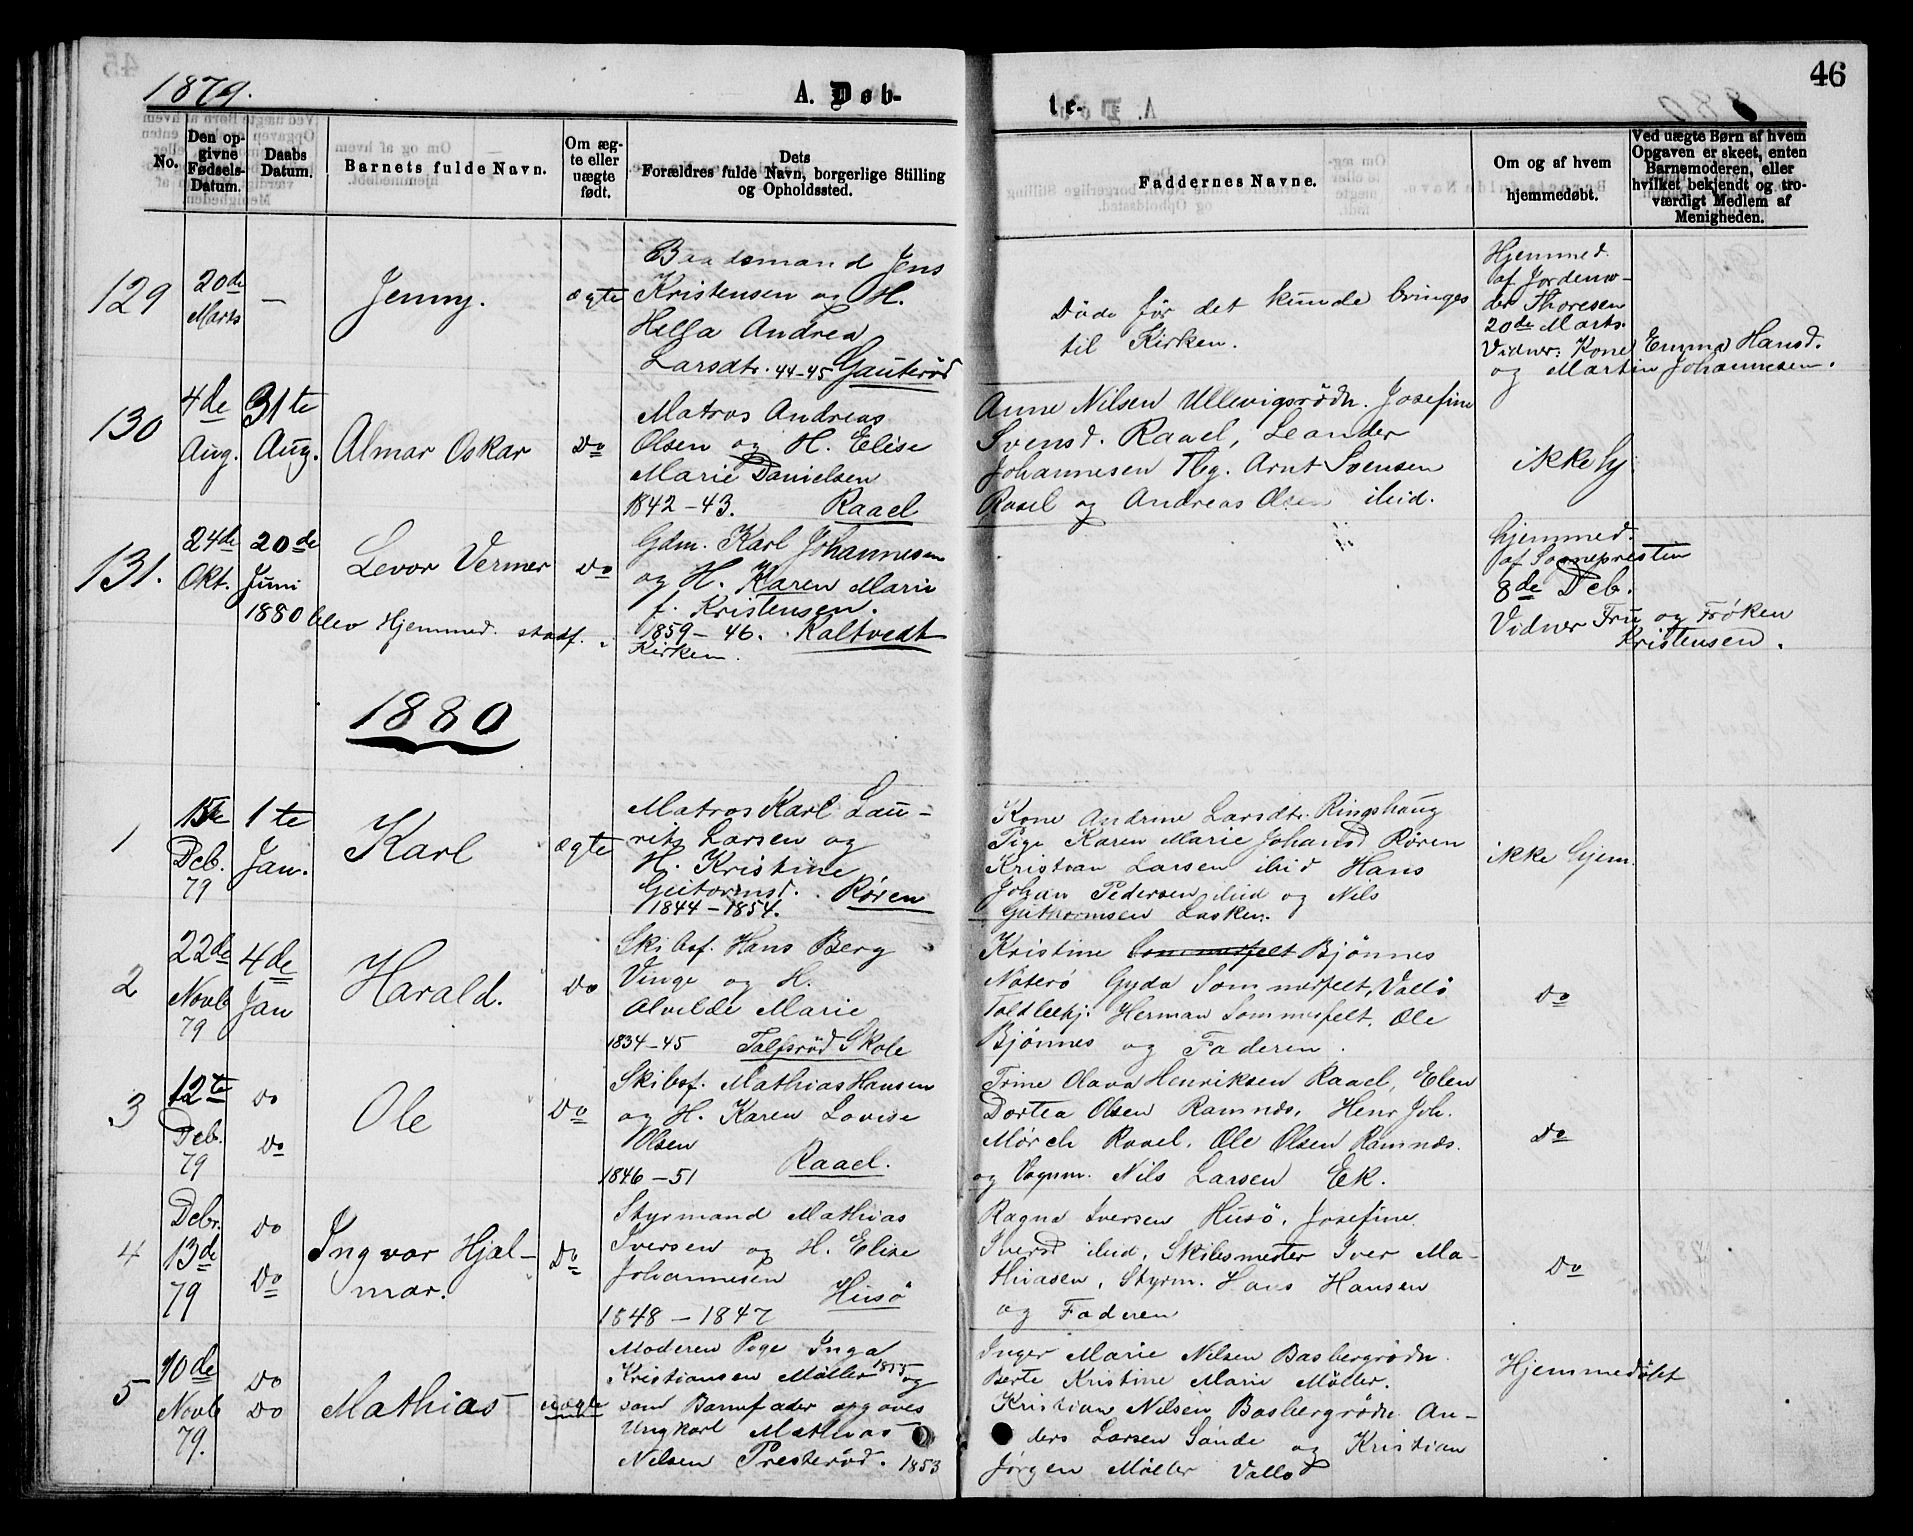 1879.
A. Døb-
te.
46
No.
Den op-
givne
Fødsels-
Datum.
Daabs
Datum.
Barnets fulde Navn.
Om æg-
te eller
uægte
født.
Dets
Forældres fulde Navn, borgerlige Stilling
og Opholdssted.
Faddernes Navne.
Om og af hvem
hjemmedøbt.
Ved uægte Børn af hvem
Opgaven er skeet, enten
Barnemoderen, eller
hvilket bekjendt og tro-
værdigt Medlem af
Menigheden.
129
20de
Marts
—
Jenny.
ægte
Baadsmand Jens
Kristensen og H.
Hella Andrea
Larsdtr. 44-45 Gauterød
Døde før det kunde bringes
til Kirken.
Hjemmed.
af Jordemo-
der Thoresen
20de Marts.
Vidner: Kone Emma Hansd.
og Martin Johannesen.
130
4de
Aug.
31te
Aug.
Almar Oskar
Do
Matros Andreas
Olsen og H. Elise
Marie Danielsen
1842-43. Raael
Anne Nilsen Ullevigsrødn. Josefine
Svensd. Raael, Leander
Johannesen Tbg. Arnt Svensen
Raael og Andreas Olsen ibid.
ikke hj
131.
24de
Okt.
20de
Juni
1880 blev Hjemmed. stadf. i
Kirken.
Levor Verner
Do
Gdm. Karl Johannesen
og H. Karen Marie
f. Kristensen.
1859-46. Kaltvedt
hjemmed.
af Sognepresten
8de Deb.
Vidner Fru og Frøken
Kristensen.
1880
1
15de
Deb.
79
1te
Jan.
Karl
ægte
Matros Karl Lau-
ritz Larsen og
H. Kristine
Gutormsd. Røren
1844-1854.
Kone Andrine Larsdtr. Ringshaug
Pige Karen Marie Johansd Røren
Kristian Larsen ibid Hans
Johan Pedersen ibid og Nils
Guthormsen Lasken.
ikke hjem.
2
22de
Novb
79
4de
Jan
Harald.
Do
Skibsf. Hans Berg
Vinge og H.
Alvilde Marie
1834-45 Tolfsrød Skole
Kristine Sommerfelt Bjønnes
Nøterø Gyda Sommerfelt, Vallø
Toldbetj. Herman Sommerfelt, Ole
Bjønnes og Faderen.
Do
3
12te
Deb.
79
Do
Do
Ole
Do
Skibsf. Mathias Hansen
og H. Karen Lovise
Olsen
1846-51 Raael.
Trine Olava Henriksen Raael, Elen
Dortea Olsen Ramnæs, Henr Joh.
Mørch Raael, Ole Olsen Ramnæs.
og Vognm. Nils Larsen Ek.
Do
4
Debr.
13de
79
Do
Do
Ingvar Hjal-
mar.
Do
Styrmand Mathias
Iversen og H. Elise
Johannesen
1848-1847 Husø
Ragna Iversen Husø, Josefine
Iversd ibid, Skibsmester Iver Ma-
thiasen, Styrm. Hans Hansen
og Faderen
Do
5
10de
Novb
79.
Do
Do
Mathias
uægte
Moderen Pige Inga
Kristiansen Møller 1855 og
som Barnefader opgaves
Ungkarl Mathias
Nilsen Presterød. 1853
Inger Marie Nilsen Basbergrødn.
Berte Kristine Marie Møller.
Kristian Nilsen Basbergrødn. An-
ders Larsen Sande og Kristian
Jørgen Møller Vallø
Hjemmedøbt